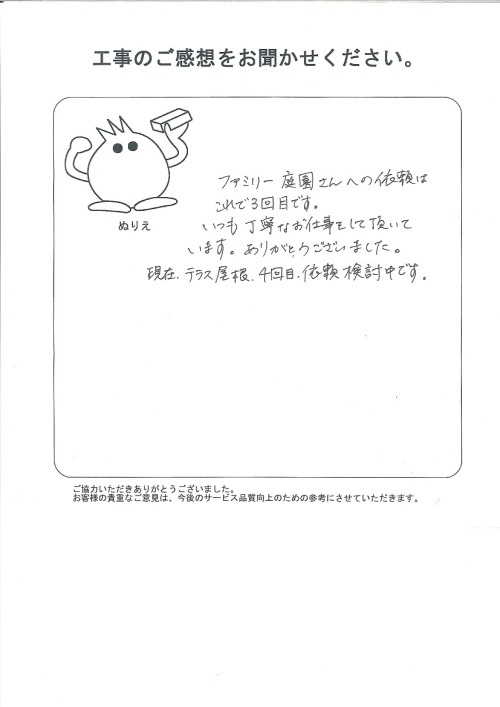 工事のご感想をお聞かせください。
ぬりえ
ファミリー庭園さんへの依頼は
これで3回目です。
いつも丁寧なお仕事をして頂いて
います。ありがとうございました。
現在、テラス屋根、4回目、依頼検討中です。
ご協力いただきありがとうございました。
お客様の貴重なご意見は、今後のサービス品質向上のための参考にさせていただきます。